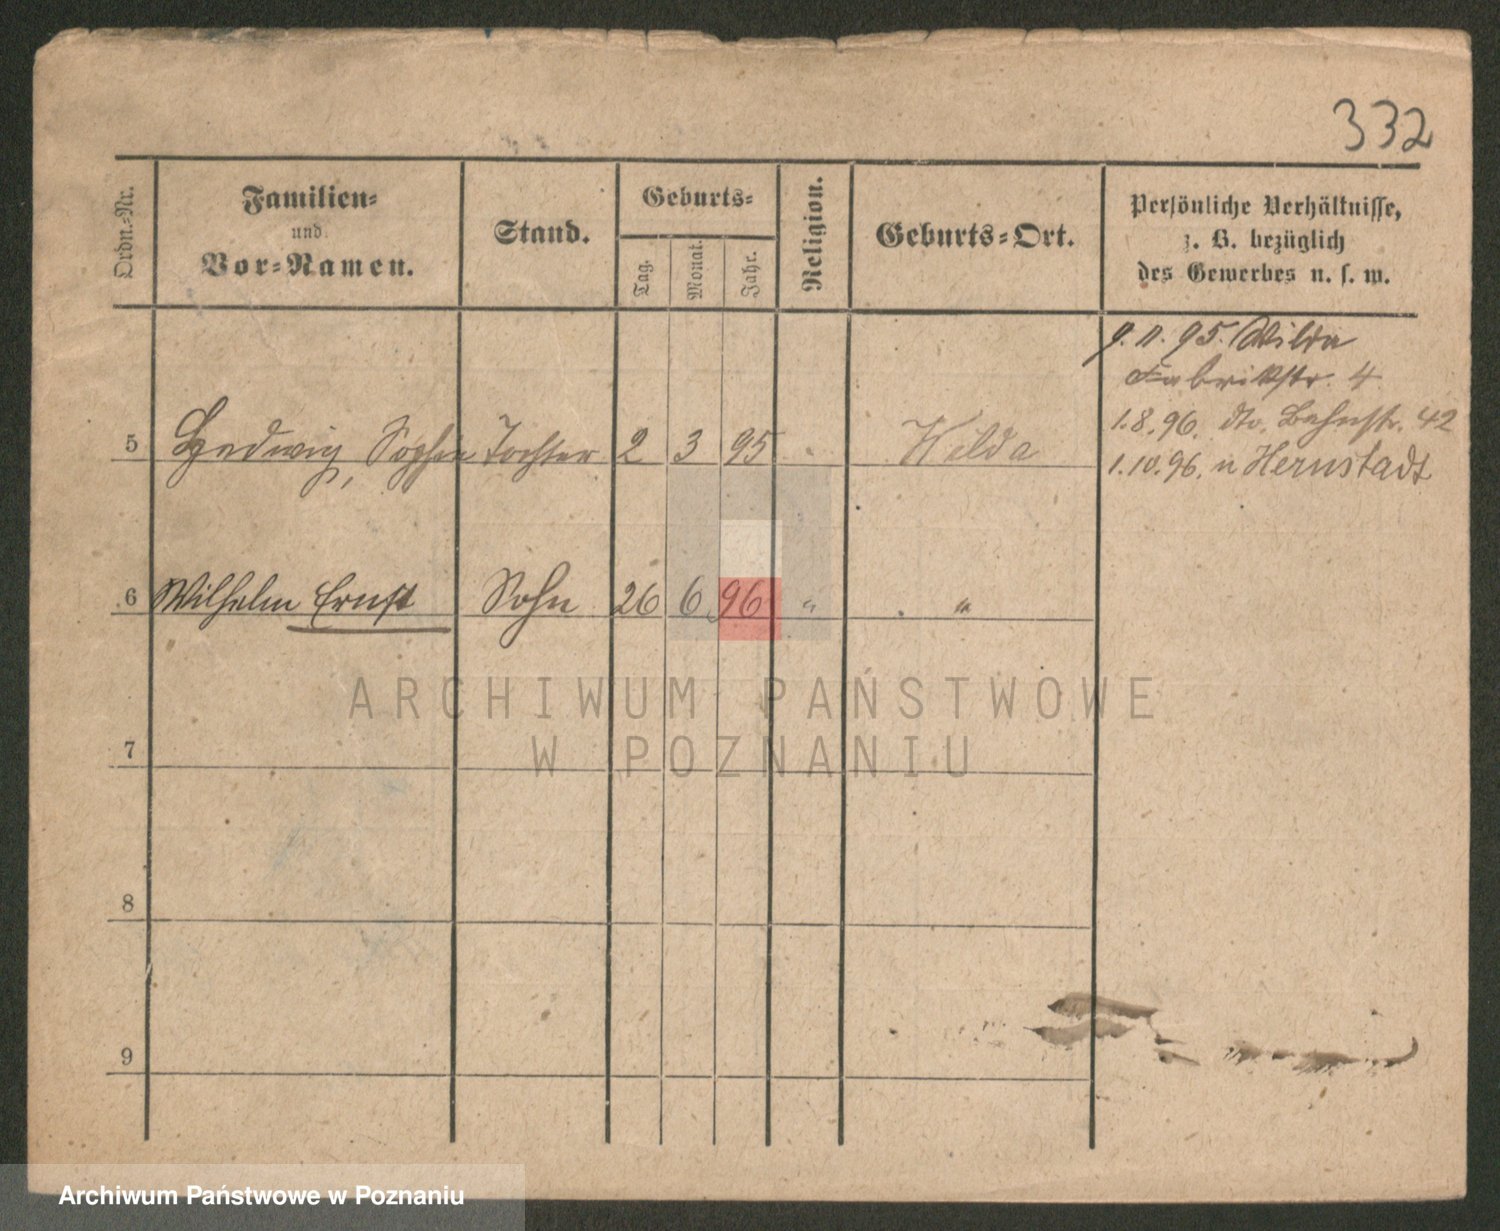 332
Ordn.-Nr.
Familien-
und
Vor-Namen.
Stand.
Geburts-
Tag.
Monat.
Jahr.
Religion.
Geburts-Ort.
Persönliche Verhältnisse,
z. B. bezüglich
des Gewerbes u. s. w.
9. 11. 95. Wilda
Fabrikstr. 4
1.8.96. dto. Bahnstr. 42
1.10.96. n Hernstadt
5 Hedwig, Sophie Tochter 2 3 95 Wilda
6 Wilhelm Ernst Sohn 26 6 96 " "
7
8
9
ARCHIWUM PAŃSTWOWE
W POZNANIU
Archiwum Państwowe w Poznaniu